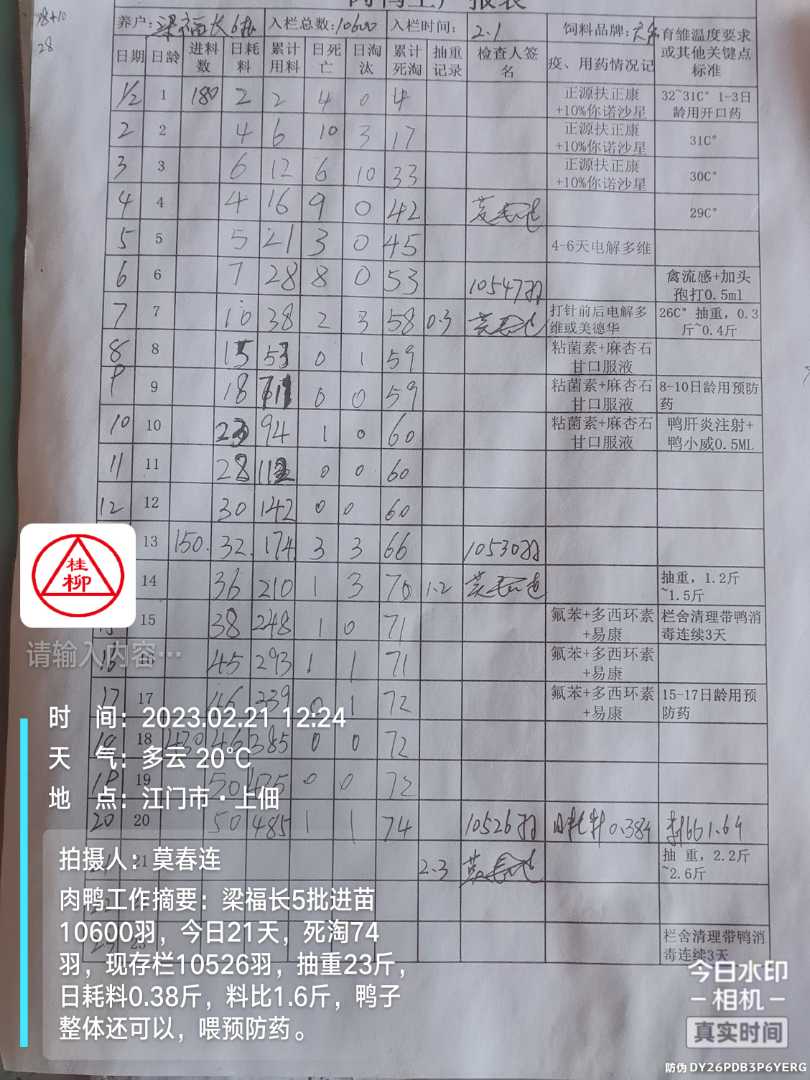 养户: 梁福长6批 入栏总数: 10600 入栏时间: 2.1 饲料品牌: 育雏温度要求或其他关键点标准
日期 日龄 进料数 日耗料 累计用料 日死亡 日淘汰 累计死淘 抽重记录 检查人签名 疫、用药情况记
1/2 1 180 2 2 4 0 4 正源扶正康+10%你诺沙星 32~31C° 1-3日龄用开口药
2 2 4 6 10 3 17 正源扶正康+10%你诺沙星 31C°
3 3 6 12 6 10 33 正源扶正康+10%你诺沙星 30C°
4 4 4 16 9 0 42 29C°
5 5 5 21 3 0 45 4-6天电解多维
6 6 7 28 8 0 53 10547羽 禽流感+加头孢打0.5ml
7 7 10 38 2 3 58 0.3 打针前后电解多维或美德华 26C° 抽重，0.3斤~0.4斤
8 8 15 53 0 1 59 粘菌素+麻杏石甘口服液
9 9 18 71 0 0 59 粘菌素+麻杏石甘口服液 8-10日龄用预防药
10 10 23 94 1 0 60 粘菌素+麻杏石甘口服液 鸭肝炎注射+鸭小威0.5ML
11 11 28 112 0 0 60
12 12 30 142 0 0 60
13 150. 32 174 3 3 66 10530羽
14 36 210 1 3 70 1.2 抽重，1.2斤~1.5斤
15 38 248 1 0 71 氟苯+多西环素+易康 栏舍清理带鸭消毒连续3天
16 45 293 1 1 71 氟苯+多西环素+易康
17 17 46 339 0 1 72 氟苯+多西环素+易康 15-17日龄用预防药
18 18 46 385 0 0 72
19 19 50 0 0 72
20 20 50 485 1 1 74 10526羽 日耗料0.384 料比1.64
21 2.3 抽 重，2.2斤~2.6斤
栏舍清理带鸭消毒连续3天
桂柳
请输入内容…
时 间：2023.02.21 12:24
天 气：多云 20℃
地 点：江门市·上佃
拍摄人：莫春连
肉鸭工作摘要：梁福长5批进苗
10600羽，今日21天，死淘74
羽，现存栏10526羽，抽重23斤，
日耗料0.38斤，料比1.6斤，鸭子
整体还可以，喂预防药。
今日水印
相机
真实时间
防伪 DY26PDB3P6YERG